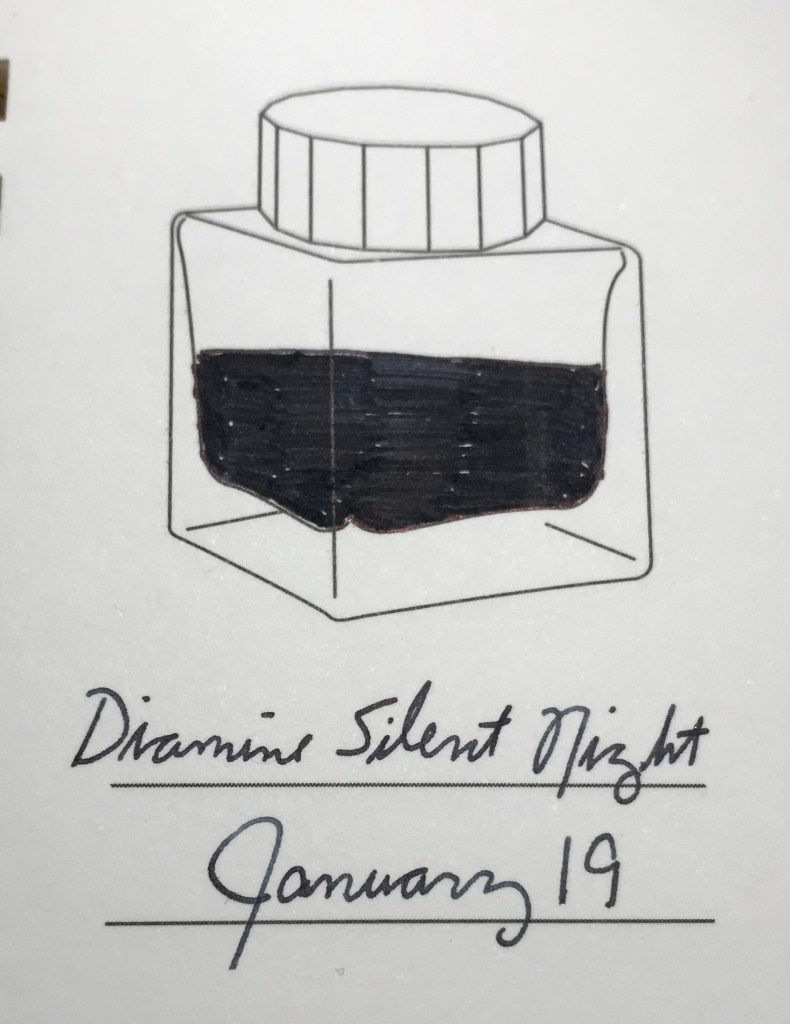 Diamine Silent Night
January 19